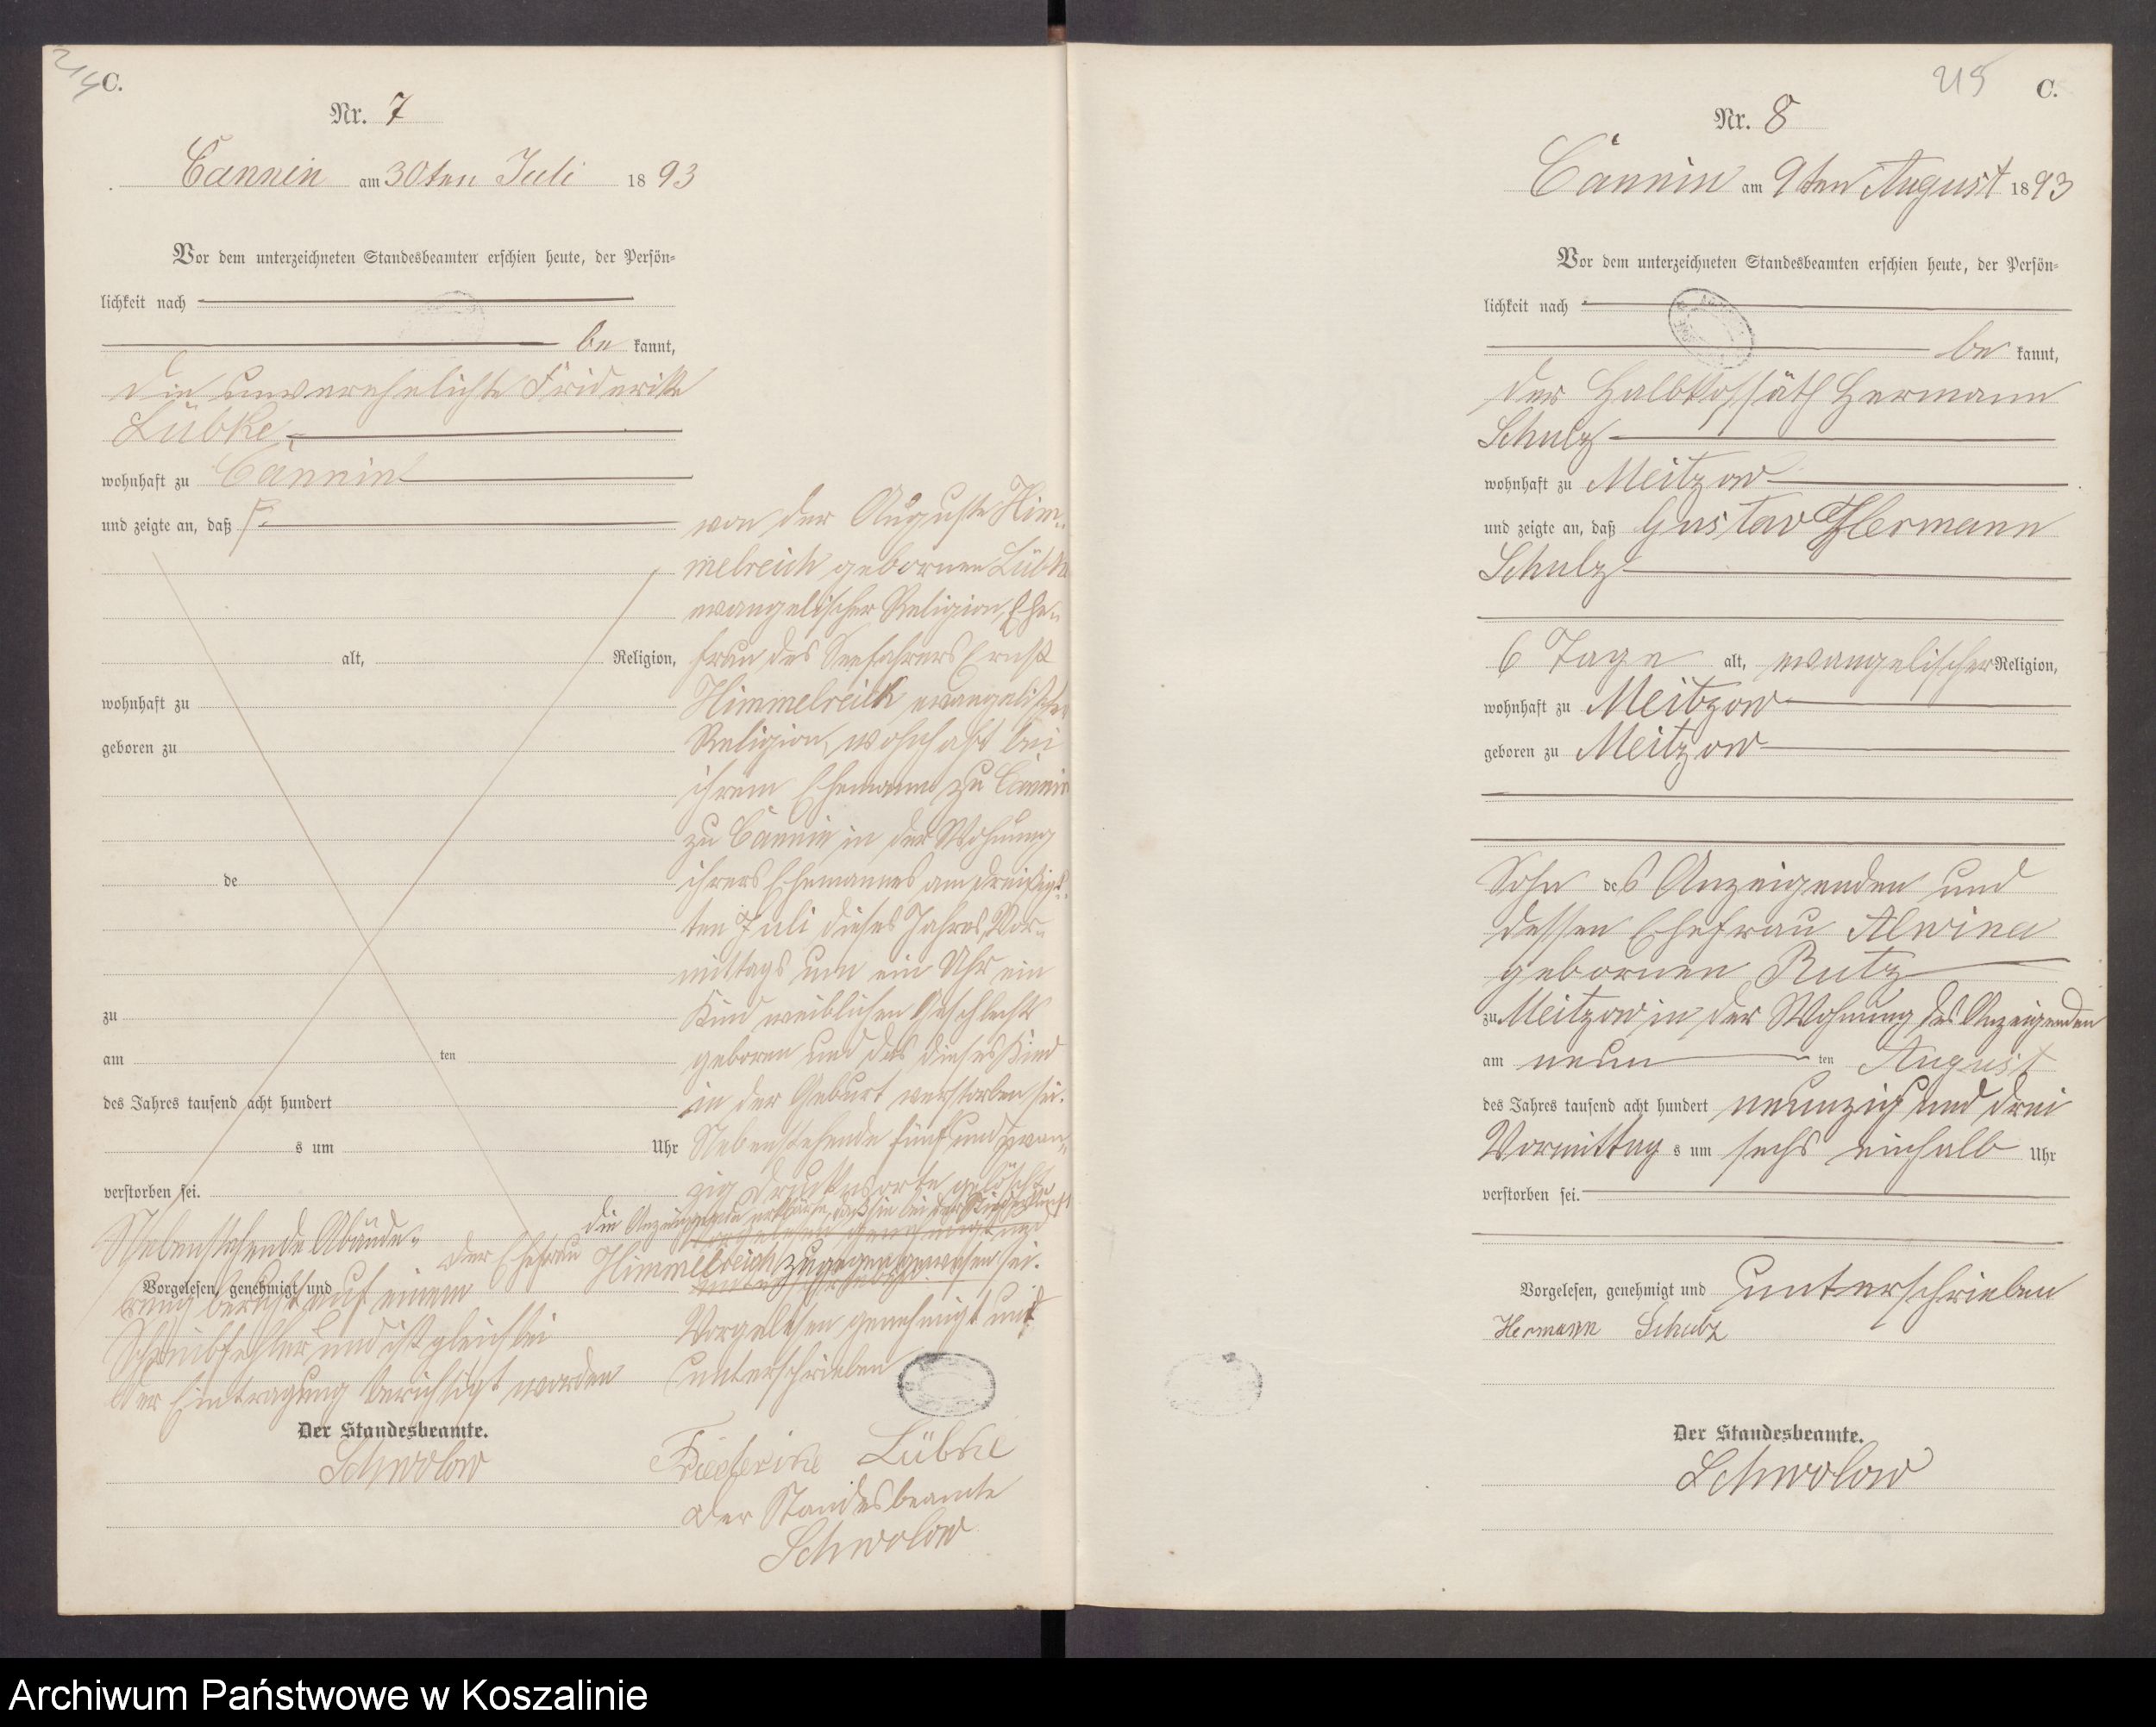 214
C.
Nr. 7
Cannin am 30ten Juli 1893
Vor dem unterzeichneten Standesbeamten erschien heute, der Persön-
lichkeit nach
be kannt,
die unverehelichte Friderike
Lübke,
wohnhaft zu Cannin
und zeigte an, daß
alt, Religion,
wohnhaft zu
geboren zu
de
zu
am ten
des Jahres tausend acht hundert
s um Uhr
verstorben sei.
von der Auguste Him-
melreich gebornen Lübke
evangelischer Religion, Ehe-
frau des Seefahrers Ernst
Himmelreich evangelischer
Religion, wohnhaft bei
ihrem Ehemann zu Cannin
zu Cannin in der Wohnung
ihrers Ehemannes am dreißigs-
ten Juli dieses Jahres, Vor-
mittags um ein Uhr ein
Kind weiblichen Geschlechts
geboren und das dieses Kind
in der Geburt verstorben sei.
Nebenstehende fünf und zwan-
zig Druckworte gelöscht
die Anzeigende erklärte, daß sie bei der Niederkunft
Vorgelesen genehmigt und
der Ehefrau Himmelreich zugegen gewesen sei.
Vorgelesen genehmigt und
unterschrieben
Friederike Lübke
Der Standesbeamte
Schwolow
Nebenstehende Abände-
Vorgelesen, genehmigt und
rung beruht auf einem
Schreibfehler und ist gleich bei
der Eintragung berichtigt worden
Der Standesbeamte.
Schwolow
215
C.
Nr. 8
Cannin am 9ten August 1893
Vor dem unterzeichneten Standesbeamten erschien heute, der Persön-
lichkeit nach
be kannt,
der Halbkossäth Hermann
Schulz
wohnhaft zu Meitzow
und zeigte an, daß Gustav Hermann
Schulz
6 Tage alt, evangelischer Religion,
wohnhaft zu Meitzow
geboren zu Meitzow
Sohn des Anzeigenden und
dessen Ehefrau Alwine
gebornen Rutz
zu Meitzow in der Wohnung des Anzeigenden
am neun ten August
des Jahres tausend acht hundert neunzig und drei
Vormittag s um sechs einhalb Uhr
verstorben sei.
Vorgelesen, genehmigt und unterschrieben
Hermann Schulz
Der Standesbeamte.
Schwolow
Archiwum Państwowe w Koszalinie